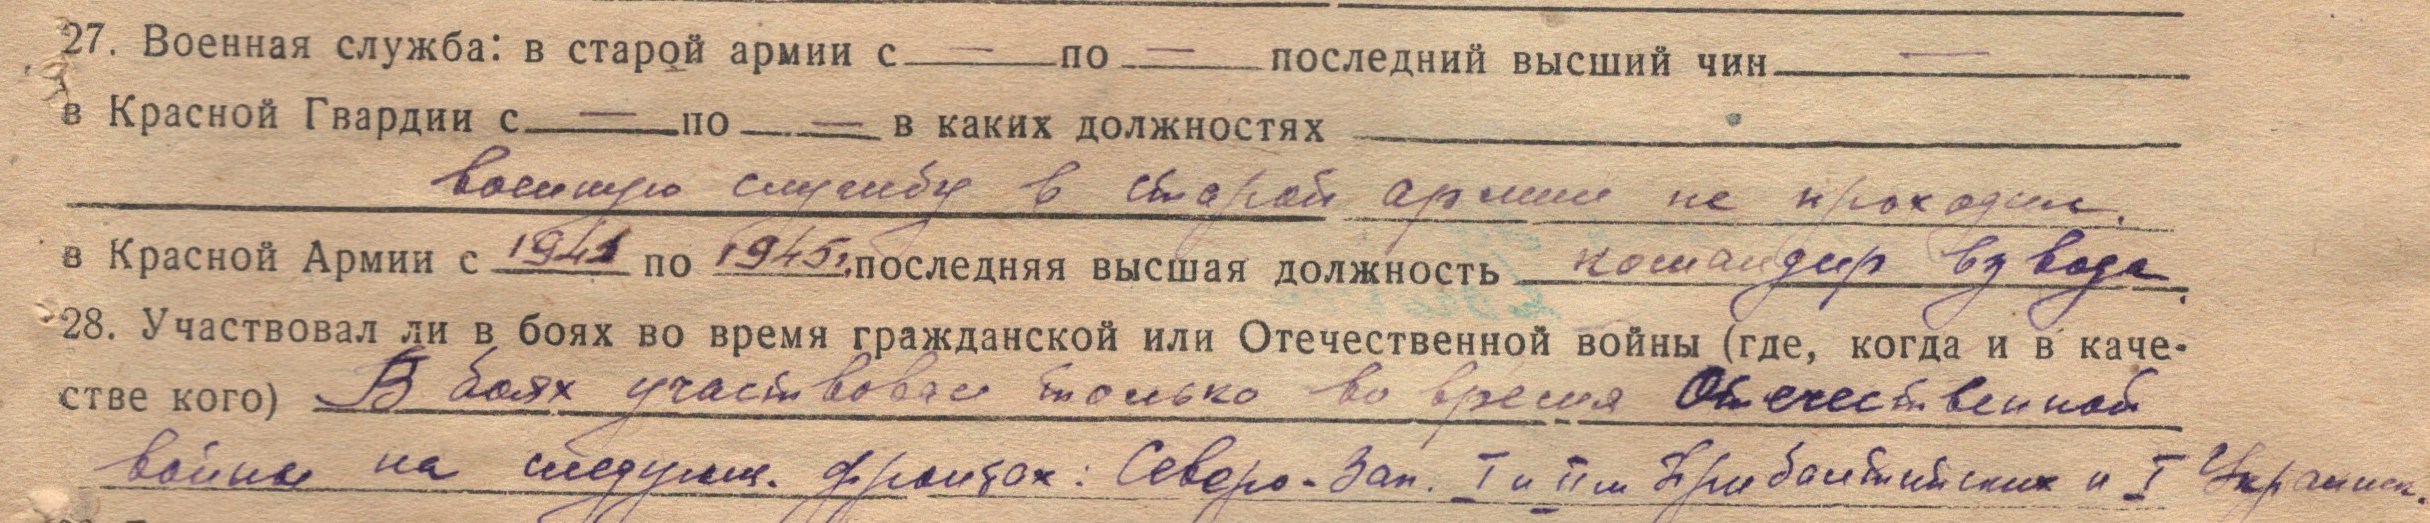 27. Военная служба: в старой армии с — по — последний высший чин —
в Красной Гвардии с — по — в каких должностях
военную службу в старой армии не проходил.
в Красной Армии с 1941 по 1945г. последняя высшая должность командир взвода
28. Участвовал ли в боях во время гражданской или Отечественной войны (где, когда и в каче-
стве кого) В боях участвовал только во время Отечественной
войны на следующ. фронтах: Северо-Зап. I и II м Прибалтийских и I Украинск.